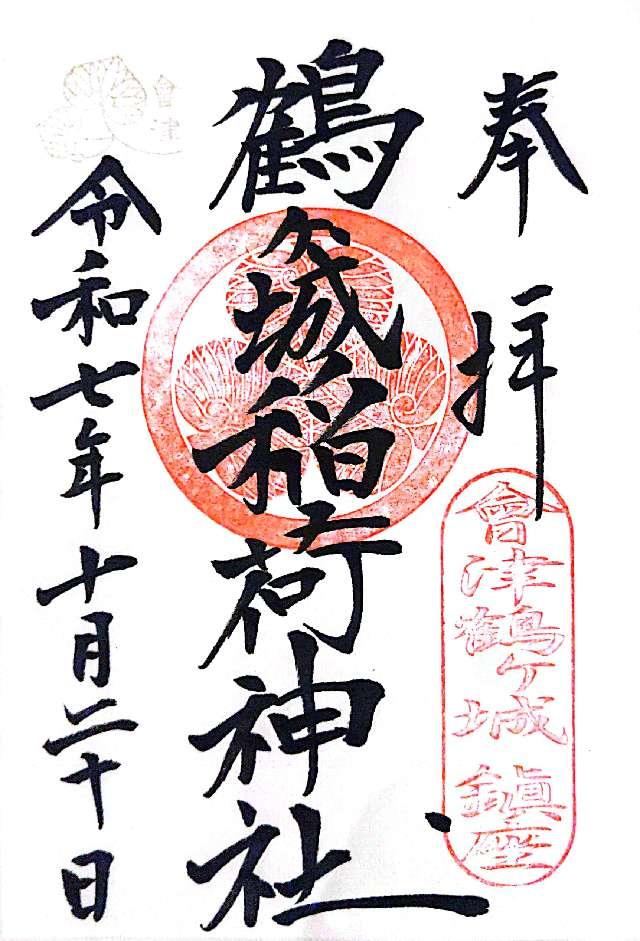 奉拝
會津鶴ケ城鎮座
鶴ヶ城稲荷神社
會津
令和七年十月二十日